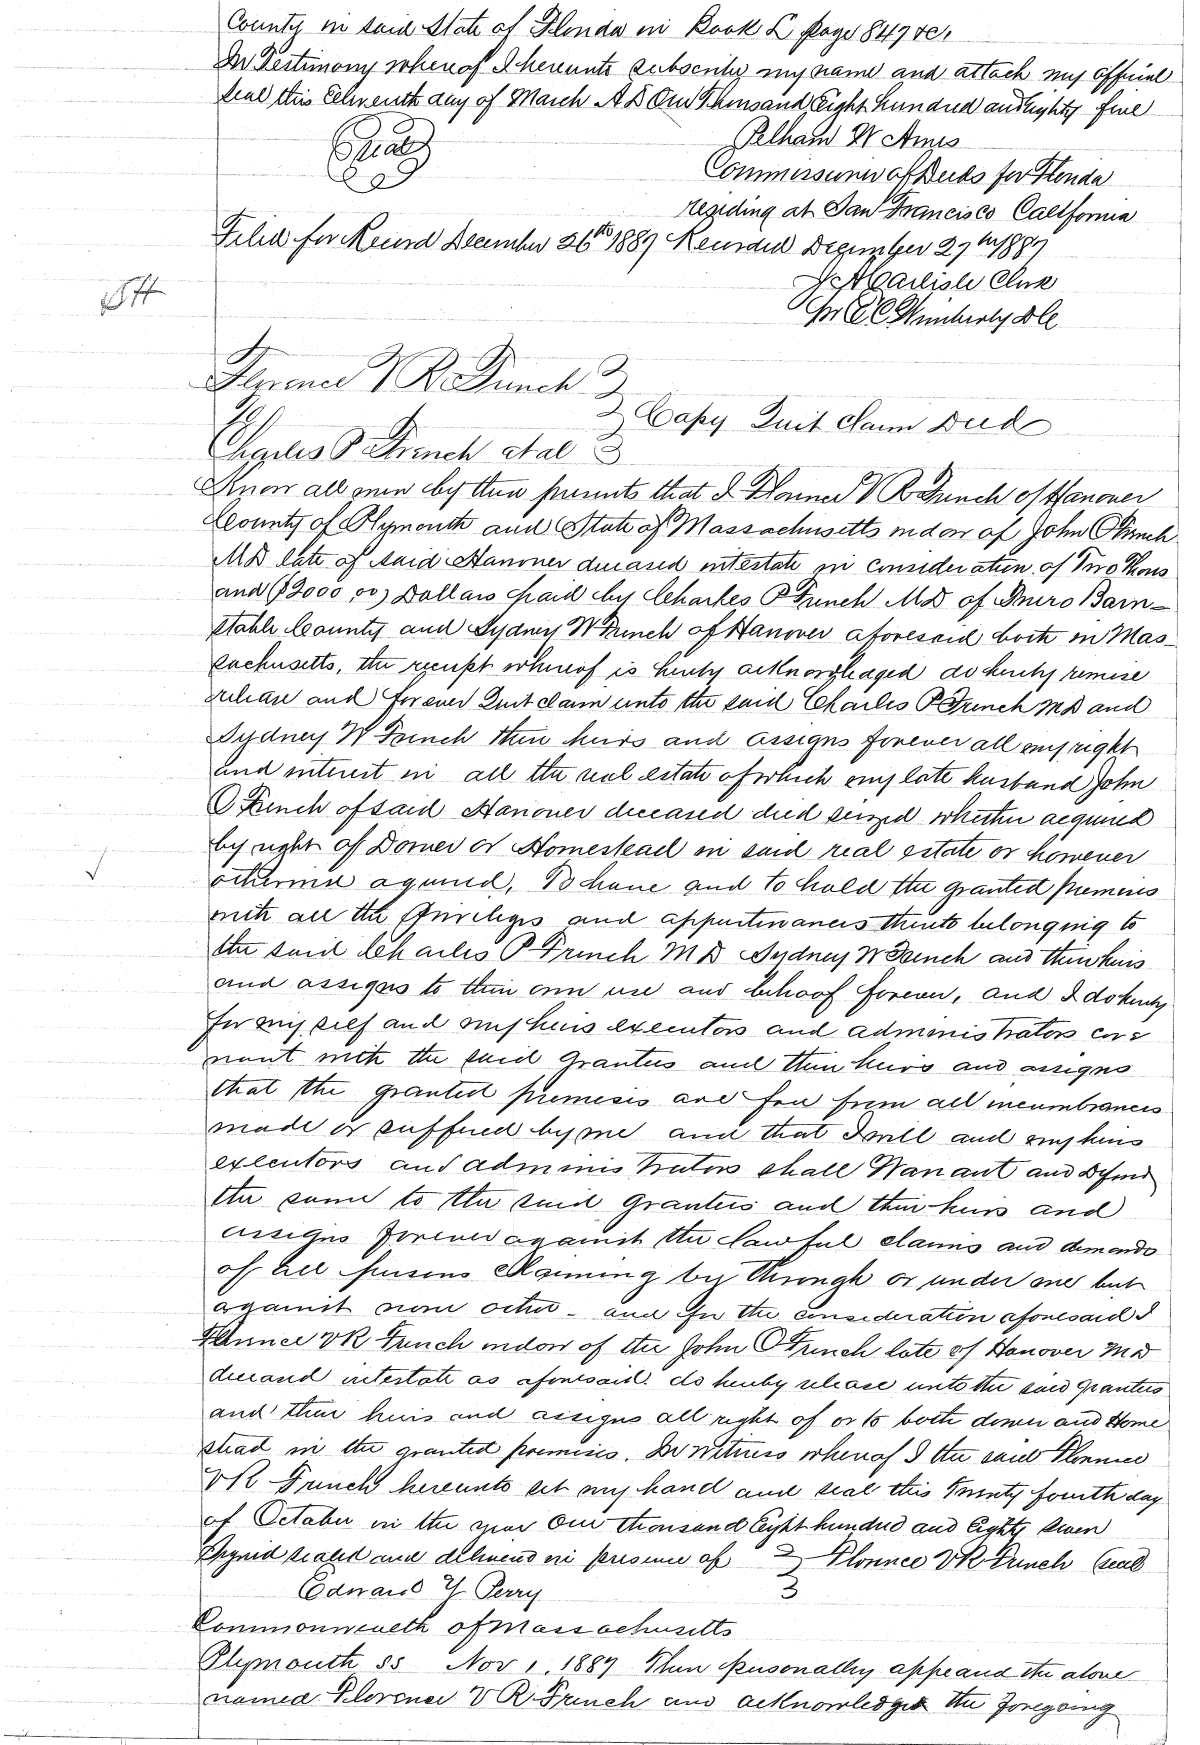 County in said State of Florida in Book L page 847 &c.
In Testimony whereof I hereunto subscribe my name and attach my official
seal this Eleventh day of March A D One Thousand Eight hundred and Eighty five
Seal
Pelham W Ames
Commissioner of Deeds for Florida
residing at San Francisco California
Filed for Record December 26th 1887 Recorded December 27th 1887
J A Carlisle Clerk
Pr E C Wimberly D C
Florence V R French
To
Copy Quit Claim Deed
Charles P French et al
Know all men by these presents that I Florence V R French of Hanover
County of Plymouth and State of Massachusetts widow of John O French
M D late of said Hanover deceased intestate in consideration of Two Thous
and ($2000.00) Dollars paid by Charles P French M D of Truro Barn-
stable County and Sydney W French of Hanover aforesaid both in Mas-
sachusetts, the receipt whereof is hereby acknowledged do hereby remise
release and forever Quit claim unto the said Charles P French M D and
Sydney W French their heirs and assigns forever all my right
and interest in all the real estate of which my late husband John
O French of said Hanover deceased died seized whether acquired
by right of Dower or Homestead in said real estate or however
otherwise aquired, To have and to hold the granted premises
with all the privileges and appurtenances thereto belonging to
the said Charles P French M D Sydney W French and their heirs
and assigns to their own use and behoof forever, and I do hereby
for my self and my heirs executors and administrators cove
nant with the said grantees and their heirs and assigns
that the granted premises are free from all incumbrances
made or suffered by me and that I will and my heirs
executors and administrators shall Warrant and Defend
the same to the said grantees and their heirs and
assigns forever against the lawful claims and demands
of all persons claiming by through or under me but
against none other - and for the consideration aforesaid I
Florence V R French widow of the John O French late of Hanover M D
deceased intestate as aforesaid do hereby release unto the said grantees
and their heirs and assigns all right of or to both dower and Home
stead in the granted premises. In witness whereof I the said Florence
V R French hereunto set my hand and seal this Twenty fourth day
of October in the year One thousand Eight hundred and Eighty seven
Signed sealed and delivered in presence of Florence V R French (seal
Edward Y Perry
Commonwealth of Massachusetts
Plymouth ss Nov 1, 1887 Then personally appeared the above
named Florence V R French and acknowledged the foregoing